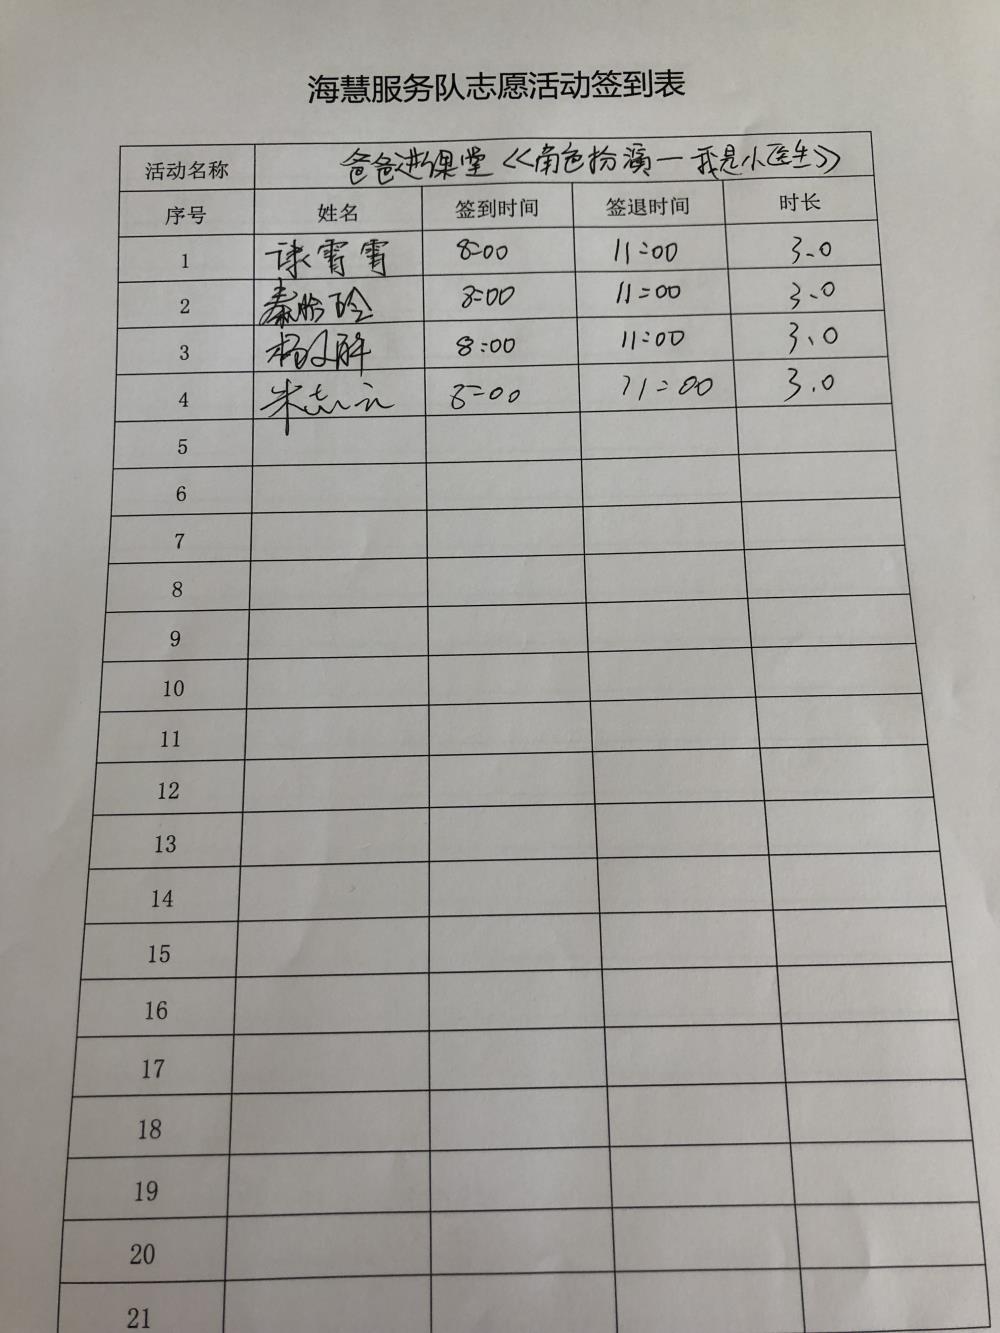 海慧服务队志愿活动签到表
活动名称 爸爸进课堂《角色扮演一我是小医生》
序号 姓名 签到时间 签退时间 时长
1 霄霄 8:00 11:00 3.0
2 秦 8:00 11:00 3.0
3 杨 8:00 11:00 3.0
4 朱志云 8:00 11:00 3.0
5
6
7
8
9
10
11
12
13
14
15
16
17
18
19
20
21